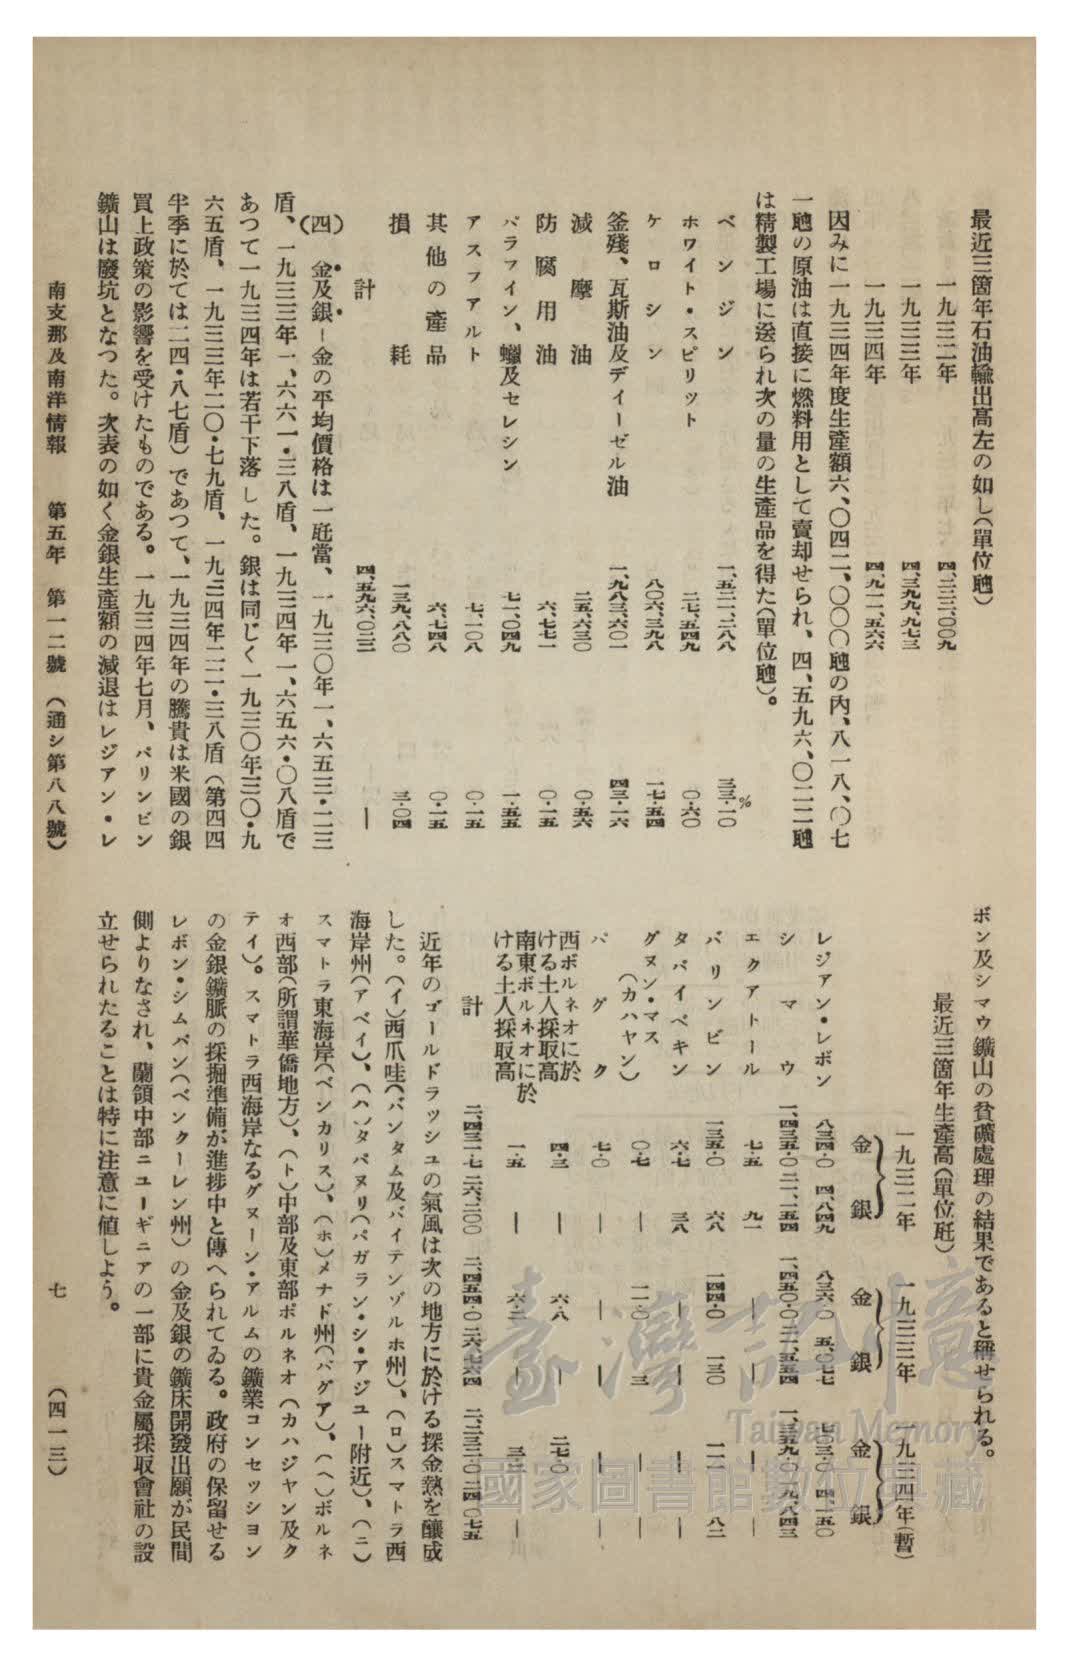 最近三箇年石油輸出高左の如し(單位瓲)
一九三二年 四、三三二、〇〇九
一九三三年 四、三九九、九七三
一九三四年 四、九一一、五六六
因みに一九三四年度生產額六、〇四二、〇〇〇瓲の內、八一八、〇〇七
一瓲の原油は直接に燃料用として賣却せられ、四、五九六、〇二二瓲
は精製工場に送られ次の量の生產品を得た(單位瓲)。
ベンジン 一、五二一、二八八 三三・一〇%
ホワイト・スピリット 二七、五四九 〇・六〇
ケロシン 八〇六、三九八 一七・五四
釜殘、瓦斯油及デイーゼル油 一、九八三、六〇一 四三・一六
減摩油 二五、六三〇 〇・五六
防腐用油 六、七七一 〇・一五
パラフイン、蠟及セレシン 七一、〇四九 一・五五
アスフアルト 七、一〇八 〇・一五
其他の產品 六、七四八 〇・一五
損耗 一三九、八八〇 三・〇四
計 四、五九六、〇二二 ―
(四) 金及銀―金の平均價格は一瓩當、一九三〇年一、六五三・二三
盾、一九三三年一、六六一・三八盾、一九三四年一、六五六・〇八盾で
あつて一九三四年は若干下落した。銀は同じく一九三〇年三〇・九
六五盾、一九三三年二〇・七九盾、一九三四年二二・三八盾(第四四
半季に於ては二四・八七盾)であつて、一九三四年の騰貴は米國の銀
買上政策の影響を受けたものである。一九三四年七月、バリンビン
鑛山は廢坑となつた。次表の如く金銀生產額の減退はレジアン・レ
ボン及シマウ鑛山の貧礦處理の結果であると稱せられる。
最近三箇年生產高(單位瓩)
一九三二年 一九三三年 一九三四年(暫)
金 銀 金 銀 金 銀
レジアン・レボン 八三四・〇 四、八四九 八三六・〇 五、〇七七 七三三・〇 四、一五〇
シマウ 一、四三五・〇 二一、一五四 一、四五〇・〇 二一、五五四 一、三五九・〇 一九、八四三
エクアトール 七・五 九一 ― ― ― ―
バリンビン 一三五・〇 六八 一四四・〇 一三〇 一一・一 八二
タバイペキン 六・七 三八 ― ― ― ―
グヌン・マス(カハヤン) 〇・七 ― 一一・〇 三 ― ―
パグク 七・〇 ― ― ― ― ―
西ボルネオに於ける土人採取高 四・三 ― 六・八 ― 二七・〇 ―
南東ボルネオに於ける土人採取高 一・五 ― 六・二 ― 三・二 ―
計 二、四三一・七 二六、二〇〇 二、四五四・〇 二六、七六四 二、一三三・〇 二四、〇七五
近年のゴールドラッシユの氣風は次の地方に於ける探金熱を釀成
した。(イ)西爪哇(バンタム及バイテンゾルホ州)、(ロ)スマトラ西
海岸州(アベイ)、(ハ)タパヌリ(パガラン・シ・アジユー附近)、(ニ)
スマトラ東海岸(ベンカリス)、(ホ)メナド州(バグア)、(ヘ)ボルネ
オ西部(所謂華僑地方)、(ト)中部及東部ボルネオ(カハジヤン及ク
テイ)。スマトラ西海岸なるグヌーン・アルムの鑛業コンセッション
の金銀鑛脈の採掘準備が進捗中と傳へられてゐる。政府の保留せる
レボン・シムパン(ベンクーレン州)の金及銀の鑛床開發出願が民間
側よりなされ、蘭領中部ニユーギニアの一部に貴金屬採取會社の設
立せられたることは特に注意に値しよう。
南支那及南洋情報 第五年 第一二號 (通シ第八八號) 七 (四一三)
臺灣記憶
Taiwan Memory
國家圖書館數位典藏